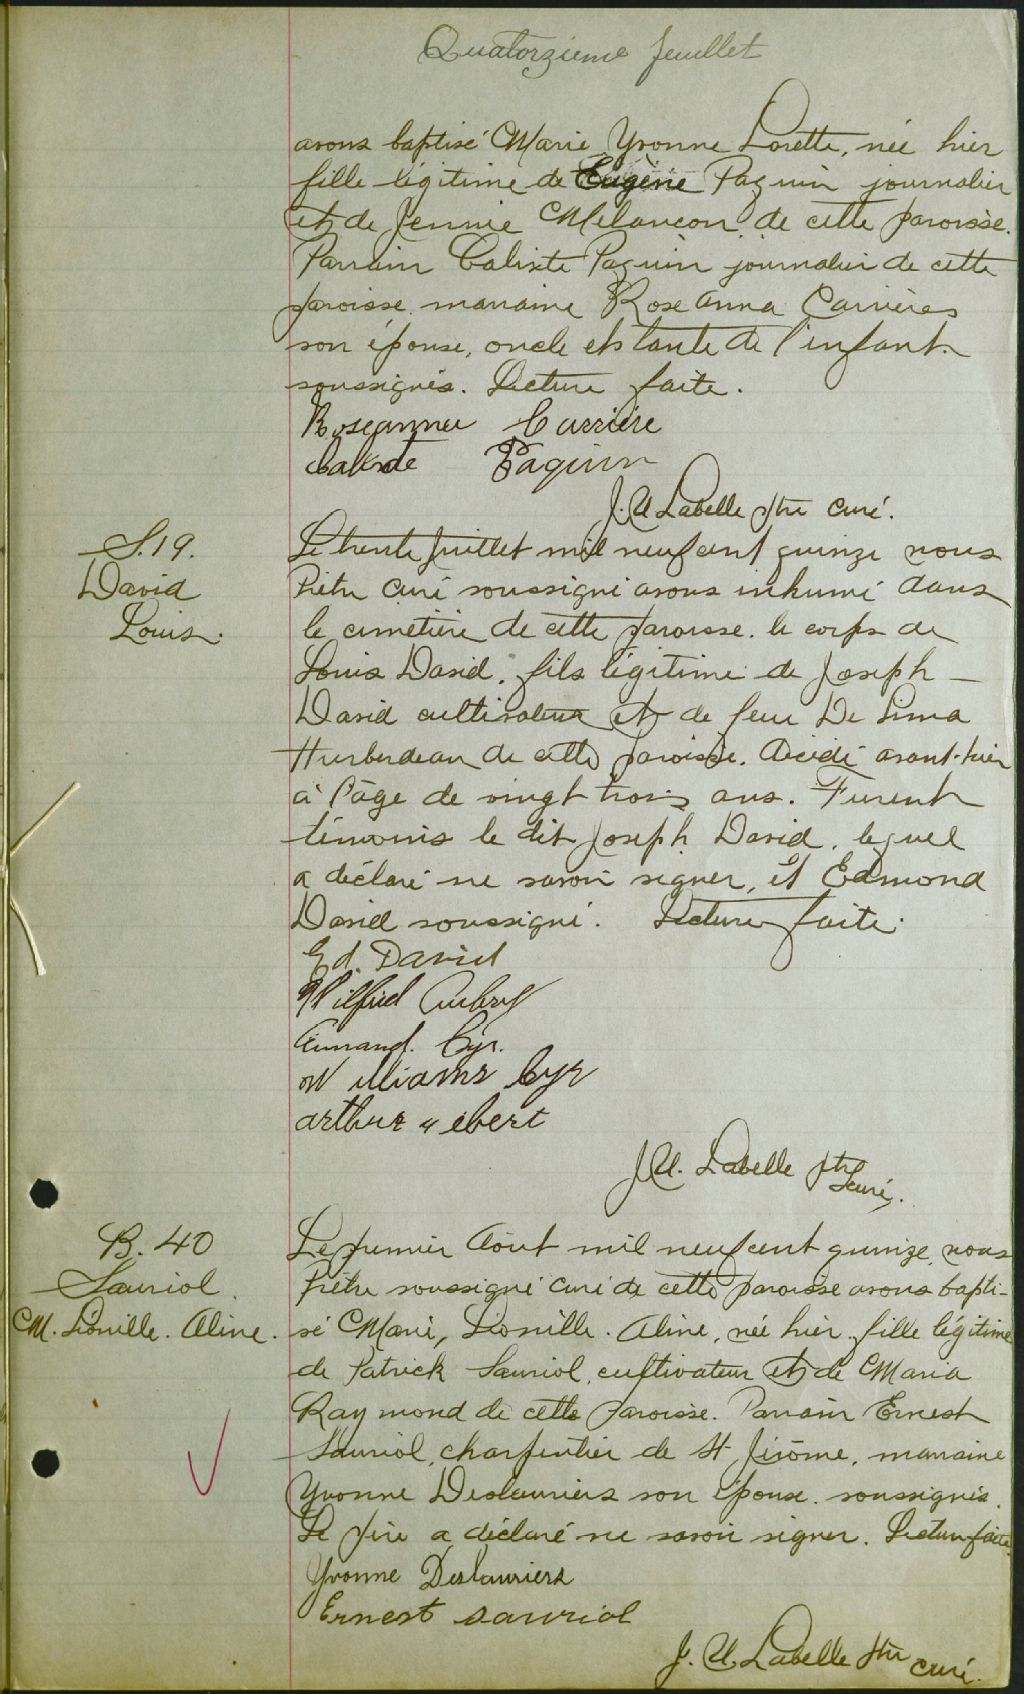 Quatorzieme feuillet
avons baptisé Marie Yvonne Lorette, née hier
fille légitime de Eugène Paquin journalier
et de Jennie Melancon de cette paroisse.
Parrain Calixte Paquin journalier de cette
paroisse. marraine Rose Anna Carrières
son épouse, oncle et tante de l'enfant.
soussignés. Lecture faite.
Roseanna Carrière
Calixte Paquin
J. U Labelle ptre curé.
S. 19.
David
Louis.
Le trente Juillet mil neuf cent quinze nous
Prêtre curé soussigné avons inhumé dans
le cimetière de cette paroisse. le corps de
Louis David. fils légitime de Joseph
David cultivateur et de feue De Lima
Hurberdeau de cette paroisse. décédé avant-hier
à l'âge de vingt trois ans. Furent
témoins le dit Joseph David. lequel
a déclaré ne savoir signer, et Edmond
David soussigné. Lecture faite.
Ed. David
Wilfrid Aubry
Armand. Cyr.
Williams Cyr
arthur
J. U. Labelle ptre
curé.
B. 40
Sauriol.
M. Lionille. Aline.
Le premier Août mil neuf cent quinze, nous
Prêtre soussigné curé de cette paroisse avons bapti-
sé Marie, Lionille. Aline, née hier, fille légitime
de Patrick Sauriol, cultivateur et de Maria
Raymond de cette paroisse. Parrain Ernest
Sauriol, charpentier de St Jérôme, marraine
Yvonne Deslauriers son épouse. soussignés.
Le père a déclaré ne savoir signer. Lecture faite.
Yvonne Deslauriers
Ernest Sauriol
J. U. Labelle ptre curé.